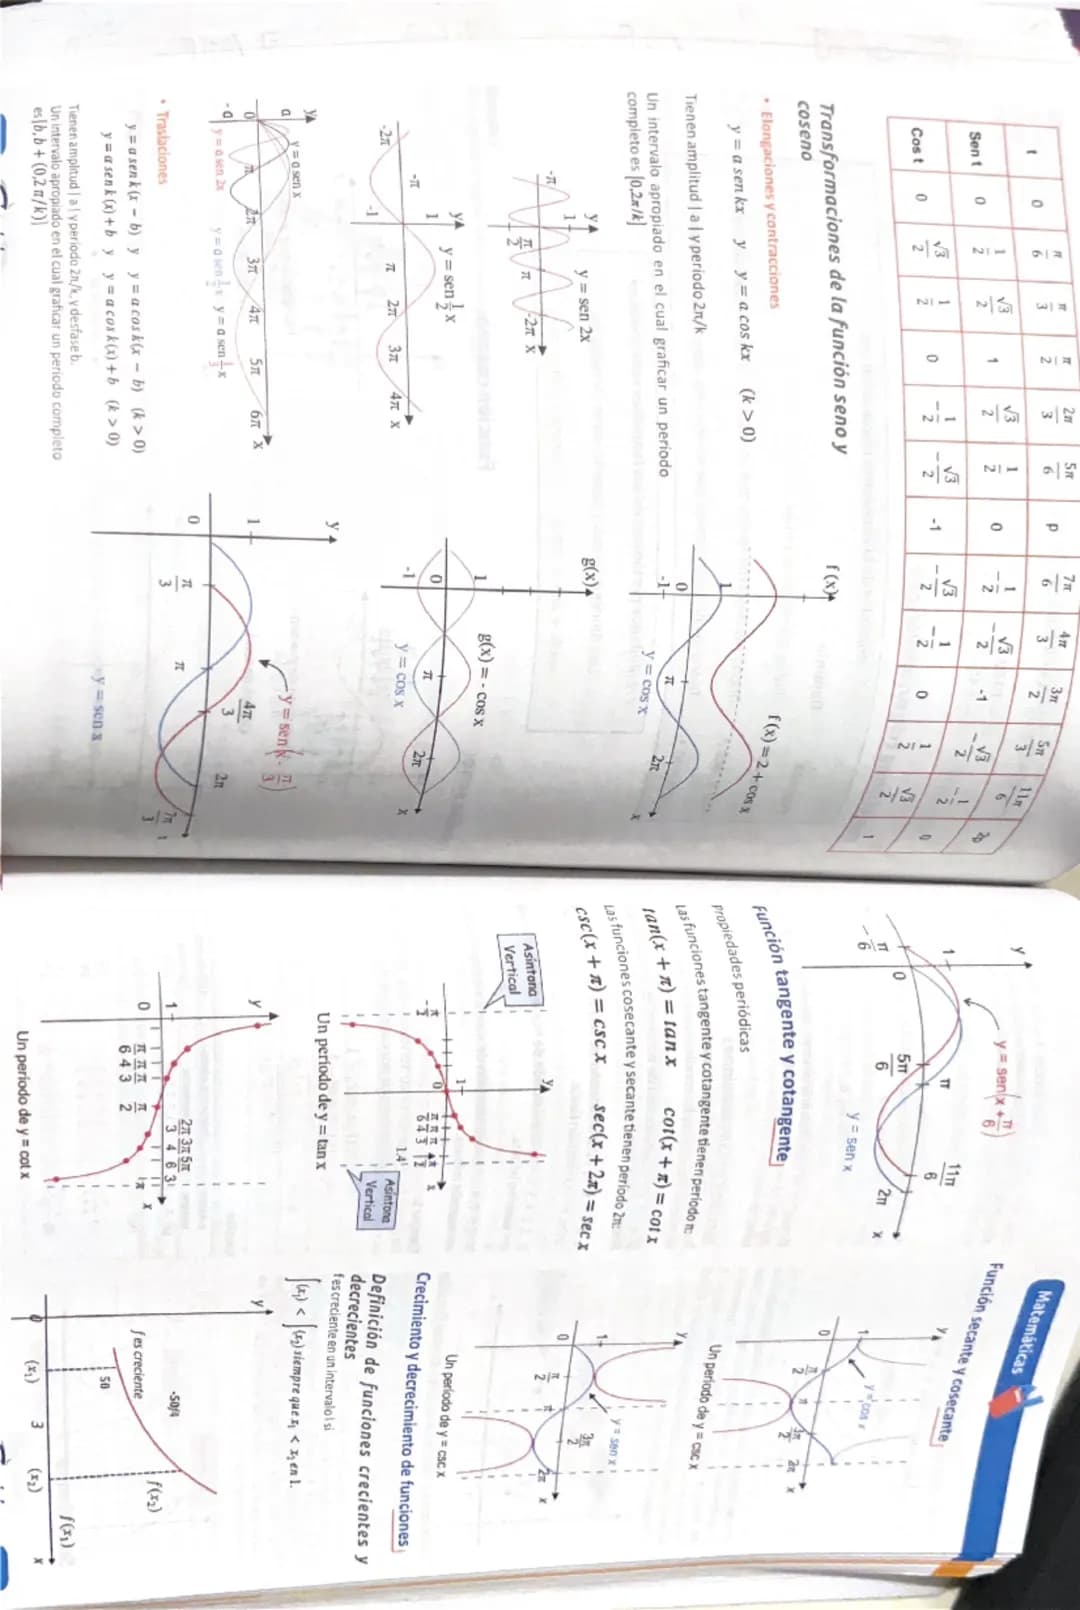 t 0 π/6 π/3 π/2 2π/3 5π/6 p 7π/6 4π/3 3π/2 5π/3 11π/6 2p
Sen t 0 1/2 √3/2 1 √3/2 1/2 0 -1/2 -√3/2 -1 -√3/2 -1/2 0
Cos t 0 √3/2 1/2 0 -1/2 -√3/2 -1 -√3/2 -1/2 0 1/2 √3/2 1
Transformaciones de la función seno y
coseno
• Elongaciones y contracciones
y = a sen kx y y = a cos kx (k > 0)
Tienen amplitud | a | y periodo 2π/k
Un intervalo apropiado en el cual graficar un periodo
completo es [0,2π/k]
y
y = sen 2x
1
-π π/2 π -2π x
y
y = sen 1/2 x
1
-2π -π π 2π 3π 4π x
-1
y
y = a sen x
a
0 π 2π 3π 4π 5π 6π x
-a
y = a sen 2x y = a sen 1/2 x y = a sen 1/3 x
• Traslaciones
y = a sen k(x − b) y y = a cos k(x − b) (k > 0)
y = a sen k(x) + b y y = a cos k(x) + b (k > 0)
Tienen amplitud | a | y periodo 2π/k, y desfase b.
Un intervalo apropiado en el cual graficar un periodo completo
es [b, b + (0,2 π/k)]
f(x)
f(x) = 2 + cos x
1
0 π 2π x
-1
y = cos x
g(x)
g(x) = - cos x
1
0 π 2π x
-1
y = cos x
y
y = sen(x - π/3)
1
0 π/3 π 4π/3 2π 7π/3
y = sen x
y
y = sen(x + π/6)
1
-π/6 0 5π/6 π 11π/6 2π x
y = sen x
Función tangente y cotangente
Propiedades periódicas
Las funciones tangente y cotangente tienen periodo π:
tan(x + π) = tan x cot(x + π) = cot x
Las funciones cosecante y secante tienen período 2π:
csc(x + π) = csc x sec(x + 2π) = sec x
Asíntona
Vertical
y
1
-π/2 0 π/6 π/4 π/3 π/2 x
1.4
Asíntona
Vertical
Un período de y = tan x
y
1
0 π/6 π/4 π/3 π/2 2π/3 3π/4 5π/6 π x
Un período de y = cot x
Matemáticas
Función secante y cosecante
y
1
y = cos x
0 π/2 π 3π/2 2π x
Un período de y = csc x
y
1
y = sen x
0 π/2 π 3π/2 2π x
Un período de y = csc x
Crecimiento y decrecimiento de funciones
Definición de funciones crecientes y
decrecientes
f es creciente en un intervalo I si
∫(x₁) < ∫(x₂) siempre que x₁ < x₂ en I.
y
-50/4
f es creciente
f(x₂)
50
f(x₁)
0 (x₁) 3 (x₂) x